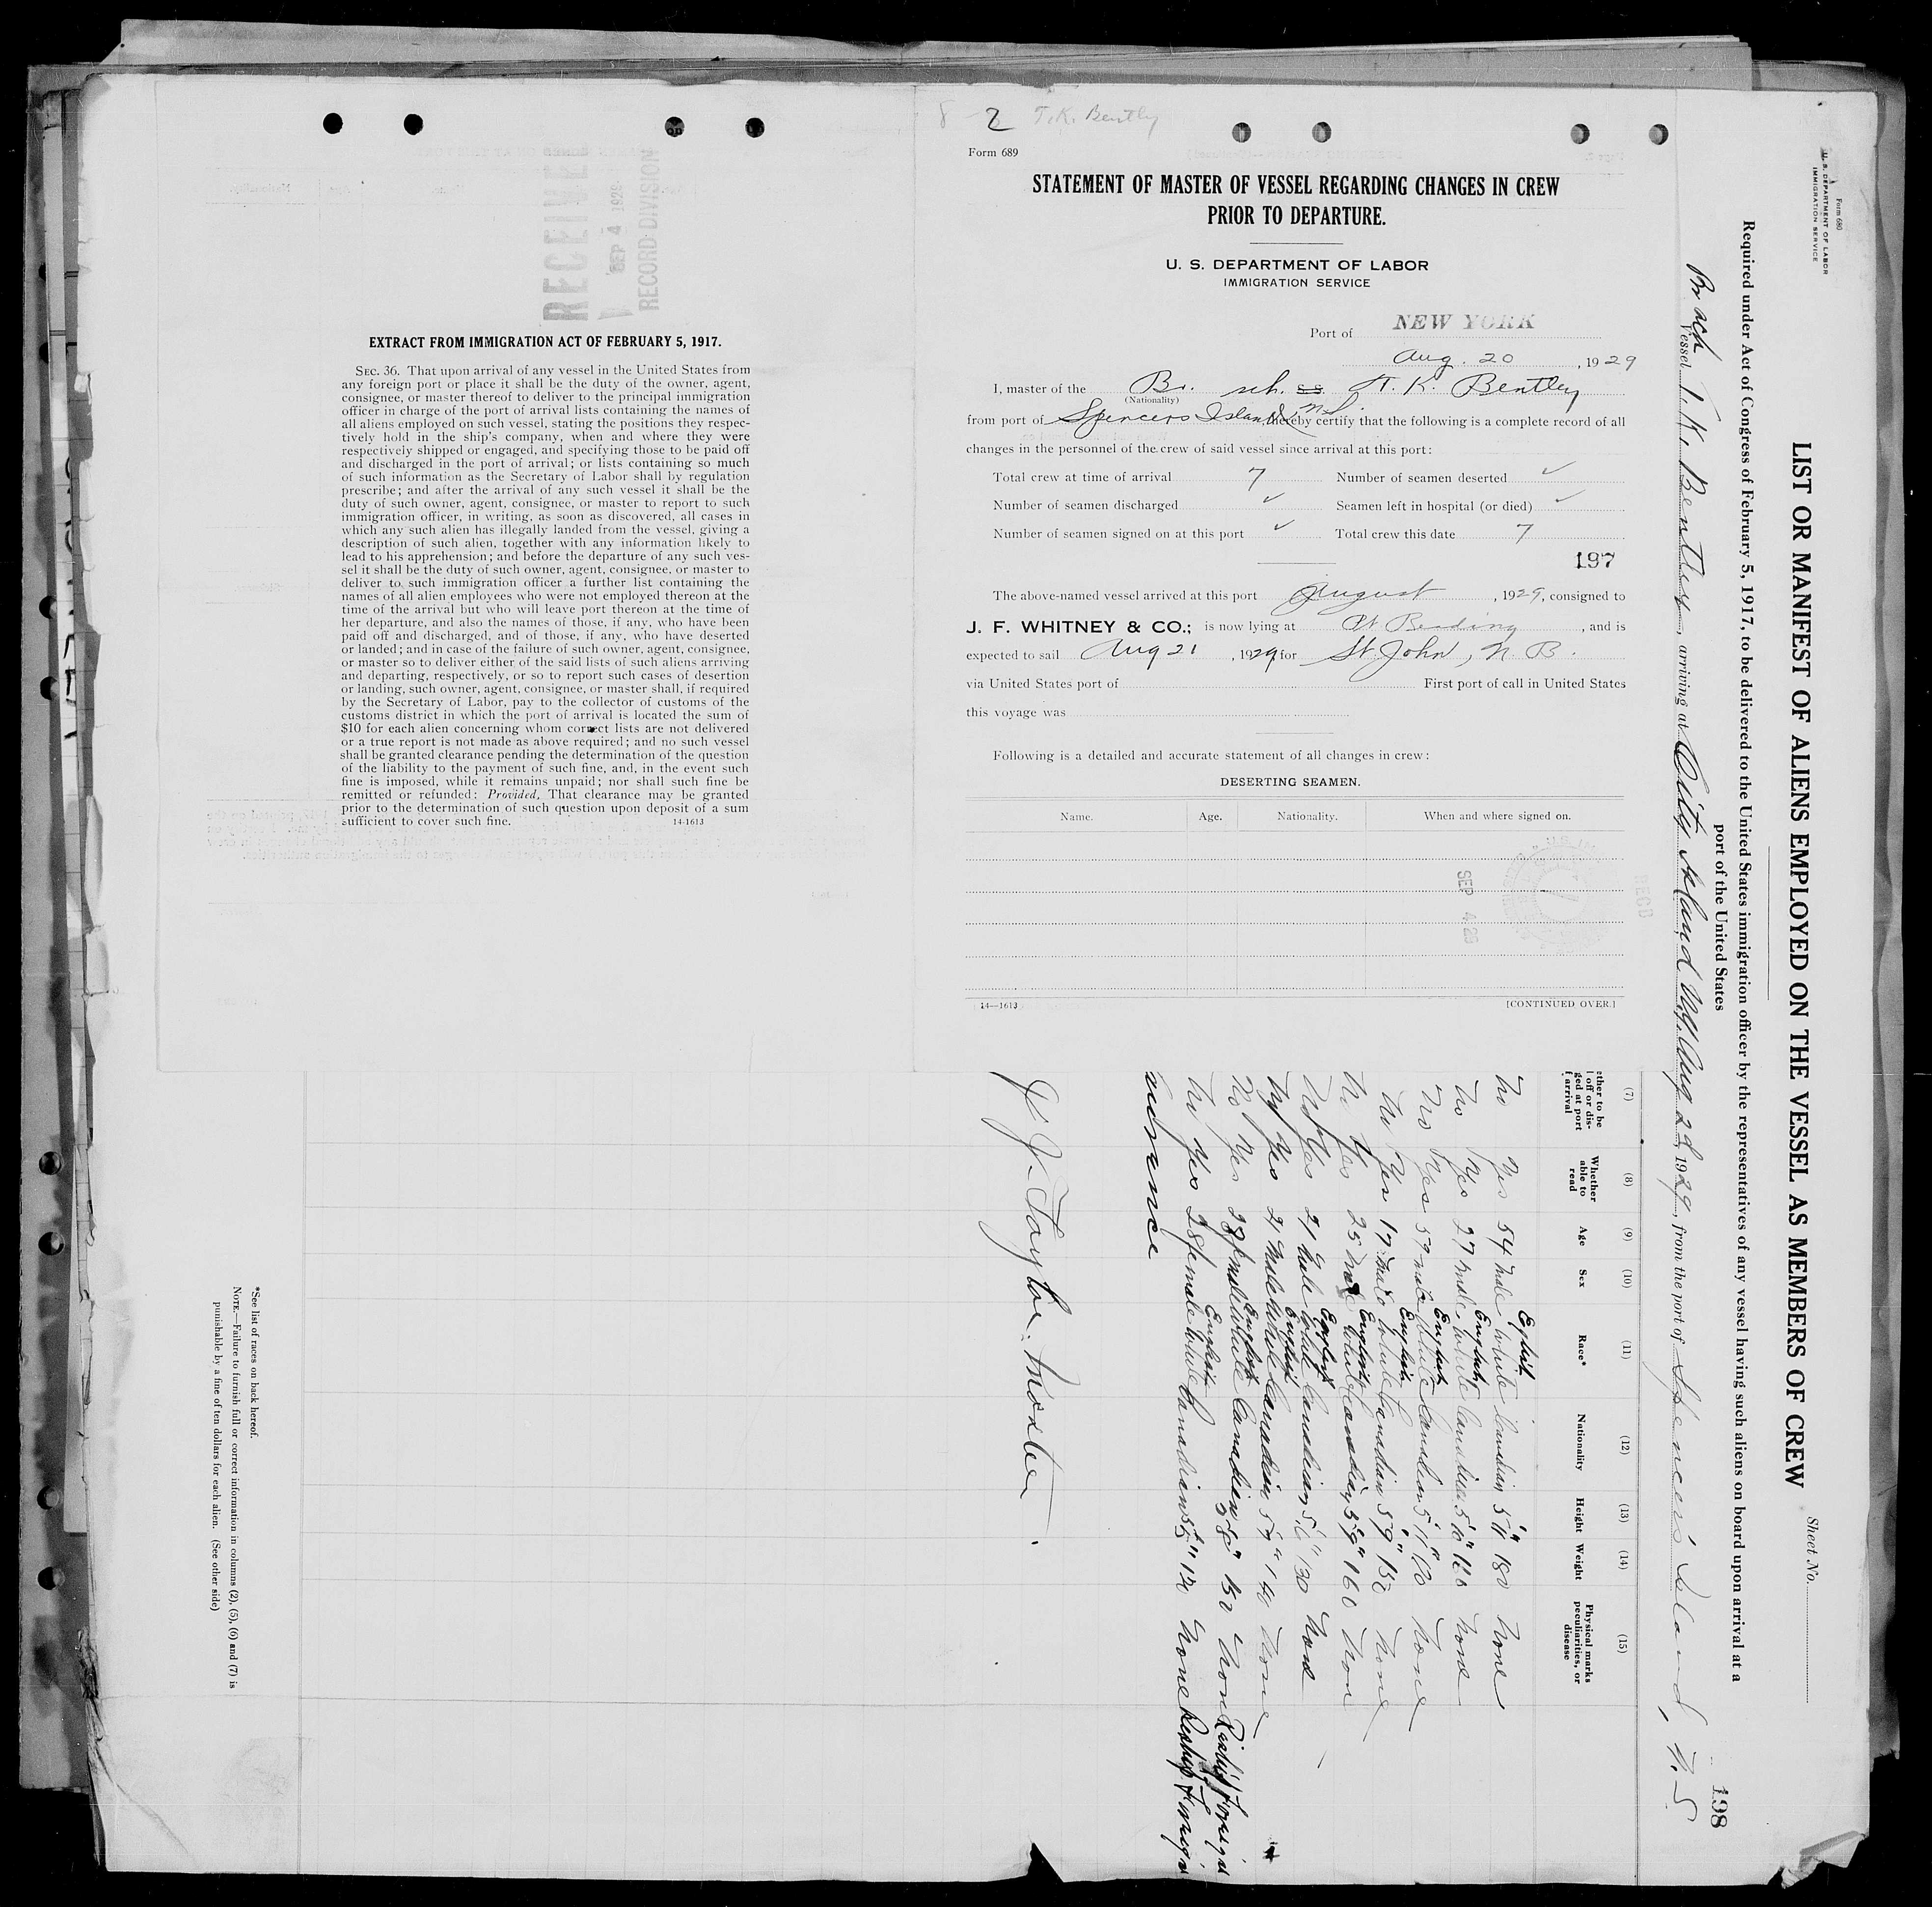 2 T. K. Bently
Form 689
STATEMENT OF MASTER OF VESSEL REGARDING CHANGES IN CREW
PRIOR TO DEPARTURE.
U. S. DEPARTMENT OF LABOR
IMMIGRATION SERVICE
Port of NEW YORK
Aug. 20, 1929
I, master of the Br. sch. S.S. T. K. Bentley
(Nationality)
from port of Spencers Island, N.S. hereby certify that the following is a complete record of all
changes in the personnel of the crew of said vessel since arrival at this port:
Total crew at time of arrival 7 Number of seamen deserted ✓
Number of seamen discharged ✓ Seamen left in hospital (or died) ✓
Number of seamen signed on at this port ✓ Total crew this date 7
197
The above-named vessel arrived at this port August, 1929, consigned to
J. F. WHITNEY & CO.; is now lying at, and is
expected to sail Aug 21, 1929, for St. John, N. B.
via United States port of First port of call in United States
this voyage was
Following is a detailed and accurate statement of all changes in crew:
DESERTING SEAMEN.
Name. Age. Nationality. When and where signed on.
SEP 4 29
RECD
14—1613 [CONTINUED OVER.]
RECEIVED
SEP 4 1929
RECORD DIVISION
EXTRACT FROM IMMIGRATION ACT OF FEBRUARY 5, 1917.
SEC. 36. That upon arrival of any vessel in the United States from
any foreign port or place it shall be the duty of the owner, agent,
consignee, or master thereof to deliver to the principal immigration
officer in charge of the port of arrival lists containing the names of
all aliens employed on such vessel, stating the positions they respec-
tively hold in the ship's company, when and where they were
respectively shipped or engaged, and specifying those to be paid off
and discharged in the port of arrival; or lists containing so much
of such information as the Secretary of Labor shall by regulation
prescribe; and after the arrival of any such vessel it shall be the
duty of such owner, agent, consignee, or master to report to such
immigration officer, in writing, as soon as discovered, all cases in
which any such alien has illegally landed from the vessel, giving a
description of such alien, together with any information likely to
lead to his apprehension; and before the departure of any such ves-
sel it shall be the duty of such owner, agent, consignee, or master to
deliver to such immigration officer a further list containing the
names of all alien employees who were not employed thereon at the
time of the arrival but who will leave port thereon at the time of
her departure, and also the names of those, if any, who have been
paid off and discharged, and of those, if any, who have deserted
or landed; and in case of the failure of such owner, agent, consignee,
or master so to deliver either of the said lists of such aliens arriving
and departing, respectively, or so to report such cases of desertion
or landing, such owner, agent, consignee, or master shall, if required
by the Secretary of Labor, pay to the collector of customs of the
customs district in which the port of arrival is located the sum of
$10 for each alien concerning whom correct lists are not delivered
or a true report is not made as above required; and no such vessel
shall be granted clearance pending the determination of the question
of the liability to the payment of such fine, and, in the event such
fine is imposed, while it remains unpaid; nor shall such fine be
remitted or refunded: Provided, That clearance may be granted
prior to the determination of such question upon deposit of a sum
sufficient to cover such fine. 14-1613
Form 680
U. S. DEPARTMENT OF LABOR
IMMIGRATION SERVICE
LIST OR MANIFEST OF ALIENS EMPLOYED ON THE VESSEL AS MEMBERS OF CREW
Sheet No.
Required under Act of Congress of February 5, 1917, to be delivered to the United States immigration officer by the representatives of any vessel having such aliens on board upon arrival at a
port of the United States
198
Br sch Vessel T. K. Bentley, arriving at City Island N.Y. Aug 2d, 1929, from the port of Spencers Island, N. S.
(7) (8) (9) (10) (11) (12) (13) (14) (15)
ether to be
off or dis-
ged at port
arrival
Whether
able to
read
Age Sex Race* Nationality Height Weight
Physical marks
peculiarities, or
disease
no Yes 54 male white English Canadian 5'11" 180 none
no Yes 27 male white English Canadian 5'10" none
no Yes male white English Canadian none
no Yes 17 male white English Canadian 5'9" none
no Yes 25 male white English Canadian 5'9" 160 none
no Yes 21 male white English Canadian none
no Yes 21 male white English Canadian 5'7" 140 none
no Yes 28 white English Canadian none
no Yes 28 female white English Canadian 5'5" none
Master.
*See list of races on back hereof.
NOTE.—Failure to furnish full or correct information in columns (2), (5), (6) and (7) is
punishable by a fine of ten dollars for each alien. (See other side)